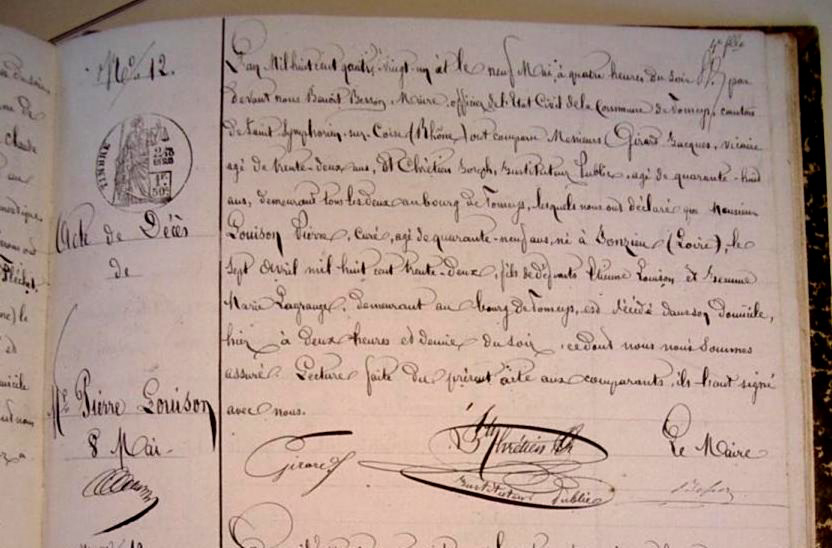 No 12.
TIMBRE
Acte de Décès
de
Mr Pierre Louison
8 Mai
L'an Mil huit cent quatre-vingt-un et le neuf Mai, à quatre heures du soir, par
devant nous Benoit Besson, Maire, officier de l'État Civil de la Commune de Pomeys, canton
de Saint Symphorien-sur-Coise (Rhône) ont comparu Messieurs Girard Jacques, vicaire
agé de trente-deux ans, Et Chrétien Joseph, Instituteur Public, agé de quarante-huit
ans, demeurant tous les deux au bourg de Pomeys, lesquels nous ont déclaré que Monsieur
Louison Pierre, curé, agé de quarante-neuf ans, né à (Loire), le
sept Avril mil huit cent trente-deux, fils de défunts Etienne Louison et Jeanne
Marie Lagrange, demeurant au bourg de Pomeys, est décédé dans son domicile,
hier à deux heures et demie du soir, ce dont nous nous sommes
assuré. Lecture faite du présent acte aux comparants, ils l'ont signé
avec nous.
Girard
Chrétien
Instituteur Public
Le Maire
Besson